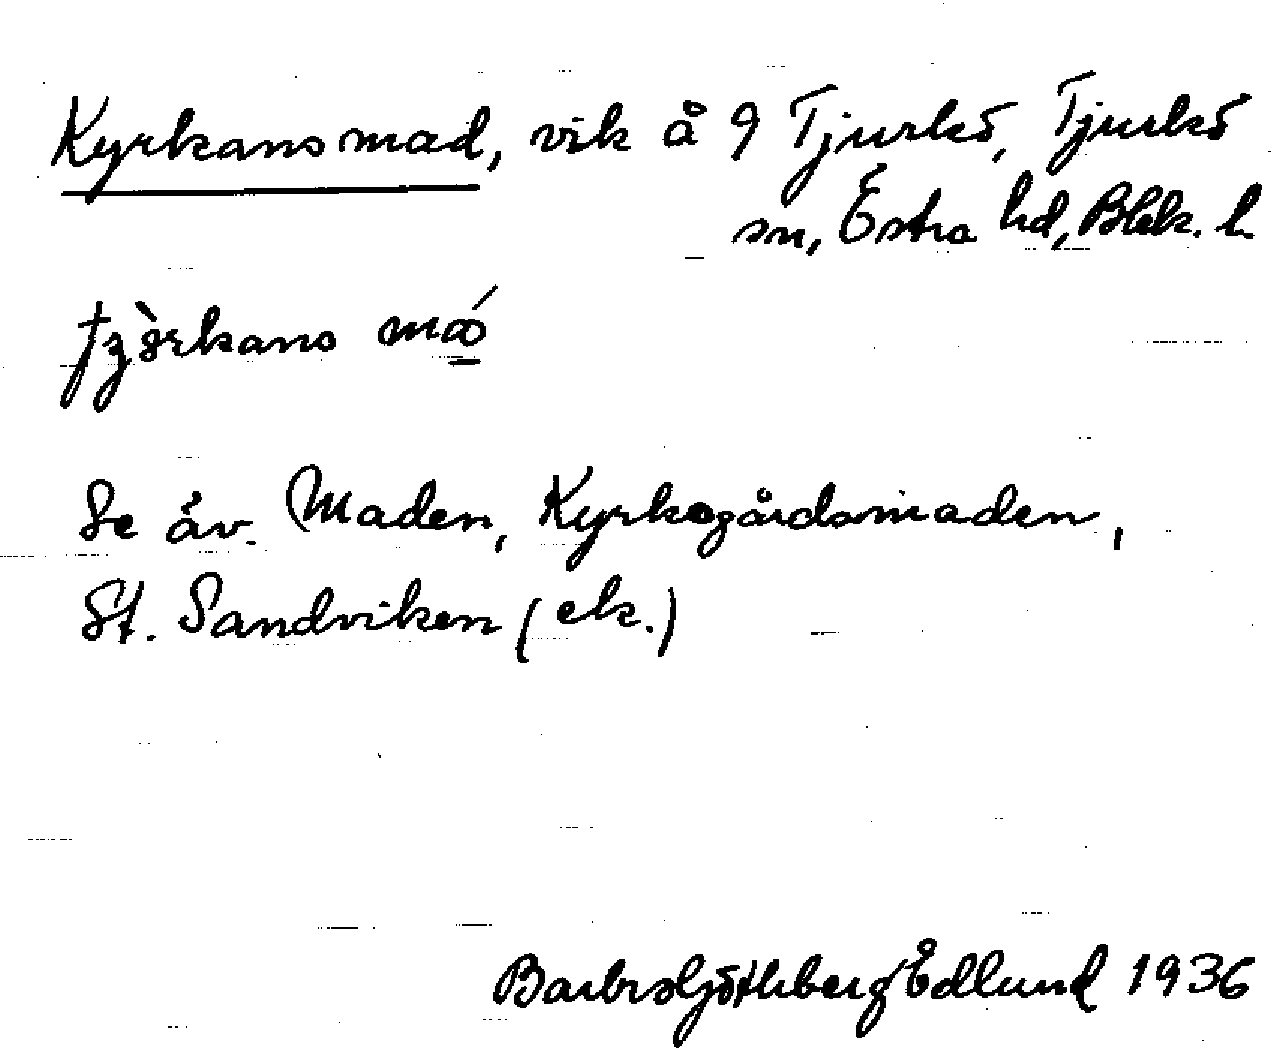 Kyrkans mad, vik å 9 Tjurkö, Tjurkö
sn, Östra hd, Blek. l.
Se äv. Maden, Kyrkogårdsmaden,
St. Sandviken (ek.)
Barbro Götlberg Edlund 1936